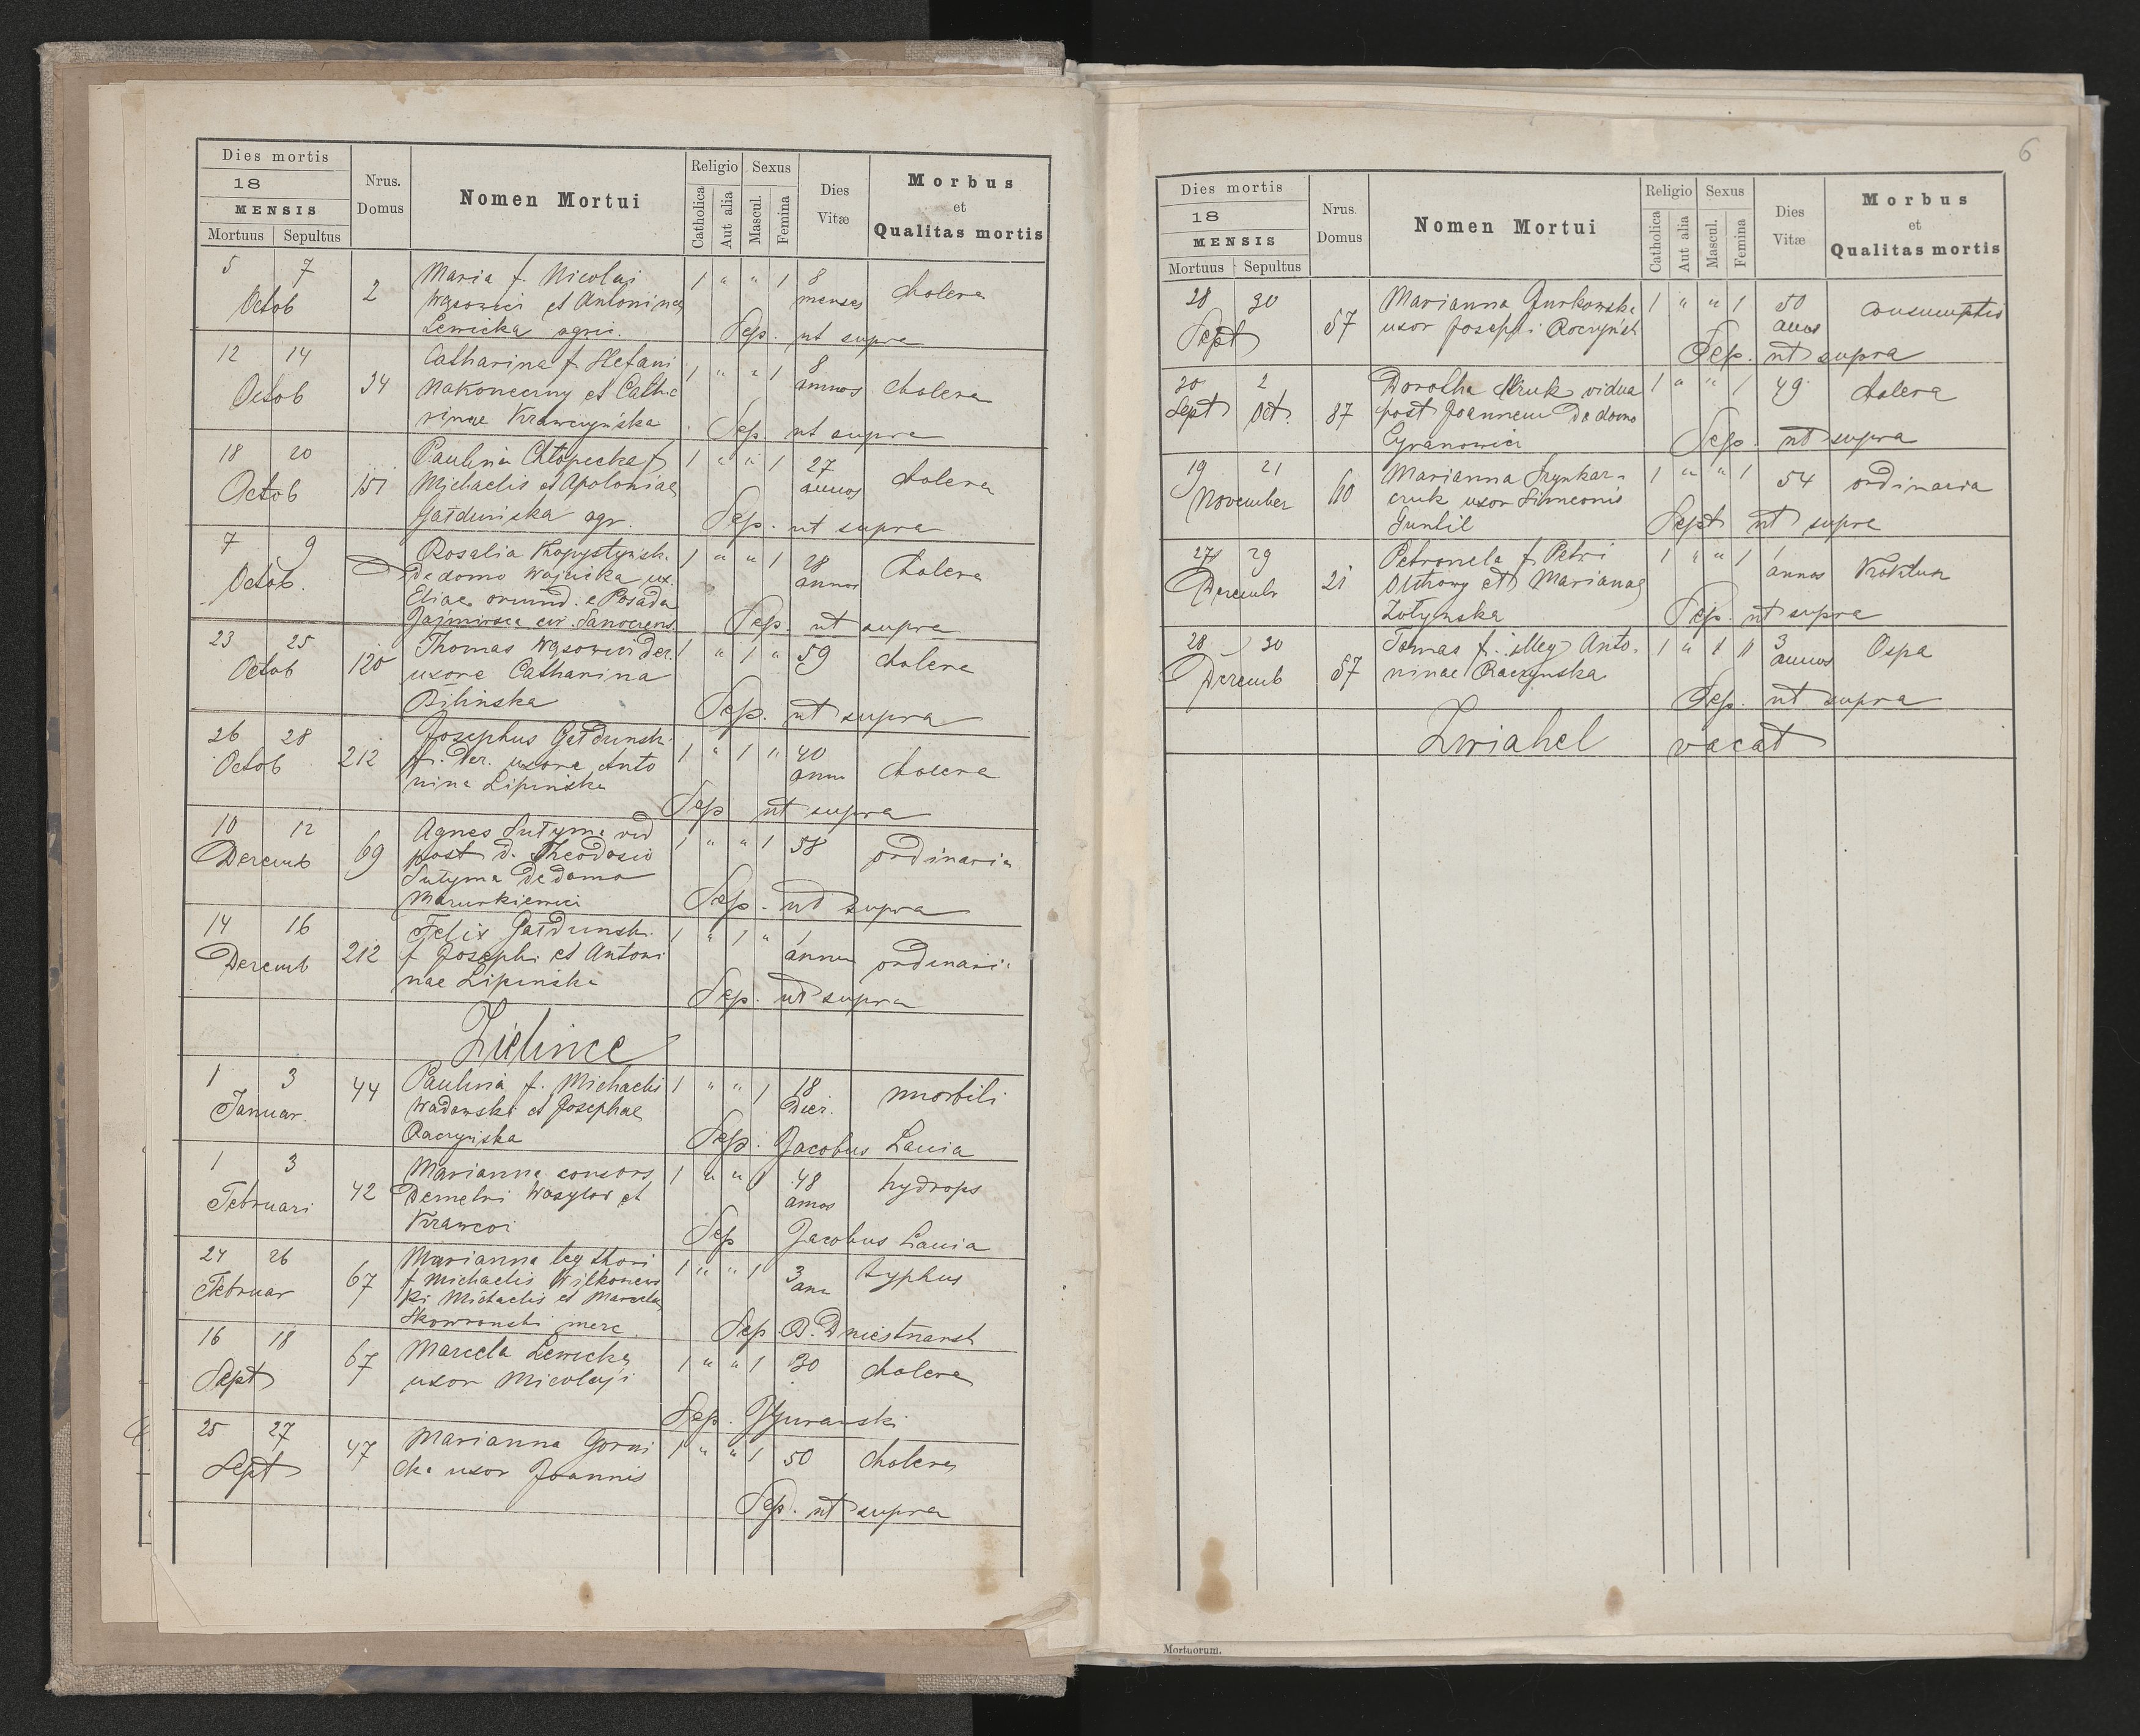 Dies mortis
18
MENSIS
Mortuus Sepultus
Nrus. Domus
Nomen Mortui
Religio
Catholica
Aut alia
Sexus
Mascul.
Femina
Dies Vitæ
Morbus et Qualitas mortis
5 7 Octob 2 Maria f. Nicolaji 1 " " 1 8 menses cholera
Wąsowicz et Antonina
Lewicka agric. Sep. ut supra
12 14 Octob 34 Catharina f. Stefani 1 " " 1 8 annos cholera
Nakoneczny et Catha
rinae Krawczyńska Sep ut supra
18 20 Octob 151 Paulina Chłopecka f 1 " " 1 27 annos cholera
Michaelis et Apoloniae
Gałdunska agr. Sep. ut supra
7 9 Octob. Rosalia Kopystyńsk. 1 " " 1 28 annos cholera
de domo Wojcicka ux.
Eliae oriund. e Posada
Jaśmirsca cir. Sanocens. Sep. ut supra
23 25 Octob 120 Thomas Wąsowicz der. 1 " 1 " 59 cholera
uxore Catharina
Bilinska Sep. ut supra
26 28 Octob 212 Josephus Gałdunsk. 1 " 1 " 40 ann cholera
f. der. uxore Anto
nina Lipinska Sep ut supra
10 12 Decemb 69 Agnes Sutyma vid 1 " " 1 58 ordinaria
post d. Theodosio
Sutyma de domo
Mazurkiewicz Sep. ut supra
14 16 Decemb 212 Felix Gałdunsk. 1 " 1 " 1 annu ordinari.
f Josephi et Antoni
nae Lipinska Sep. ut supra
Zielince
1 3 Januar. 44 Paulina f. Michaelis 1 " " 1 18 dier. morbili
Wadowski et Josephae
Raczyńska Sep. Jacobus Lania
1 3 Februari 42 Marianna consors 1 " " 1 48 annos hydrops
Demetri Wasylow et
Krawcoi Sep Jacobus Lania
24 26 Februar 67 Marianna leg thori 1 " " 1 3 ann typhus
f Michaelis Wilkonews
ki Michaelis et Marcela
Skowronski merc. Sep D. Dniestransk
16 18 Sept 67 Marcela Lewicka 1 " " 1 30 cholera
uxor Micolaji
Sep.
25 27 Sept 47 Marianna Gorni 1 " " 1 50 cholera
cka uxor Joannis
Sep. ut supra
6
Dies mortis
18
MENSIS
Mortuus Sepultus
Nrus. Domus
Nomen Mortui
Religio
Catholica
Aut alia
Sexus
Mascul.
Femina
Dies Vitæ
Morbus et Qualitas mortis
28 30 Sept 57 Marianna Gurkowska 1 " " 1 50 annos consumptio
uxor Josephi Raczyńsk
Sep. ut supra
30 Sept 2 Oct. 87 Dorotha Kruk vidua 1 " " 1 49 cholera
post Joannem de domo
Cyranowicz Sep. ut supra
19 21 November 60 Marianna Szynkar- 1 " " 1 54 ordinaria
czuk uxor Simeonis
Guntil Sept ut supra
27 29 Decembr 21 Petronela f. Petri 1 " " 1 1 annos Kroklusz
Olchowy et Marianae
Zołynska Sep. ut supra
28 30 Decemb 57 Tomas f. illeg Anto- 1 " 1 " 3 annos Ospa
ninae Raczynska
Sep. ut supra
Zwiahel vacat
Mortuorum.